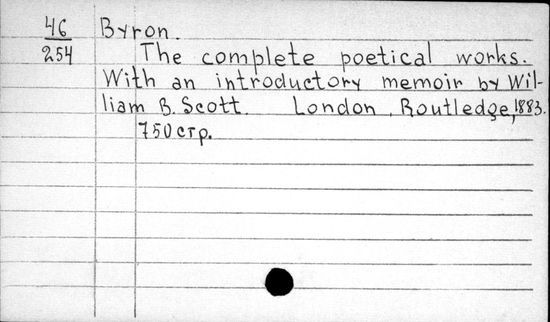 46 Byron.
254 The complete poetical works.
With an introductory memoir by Wil-
liam B. Scott. London, Routledge, 1883.
750 стр.